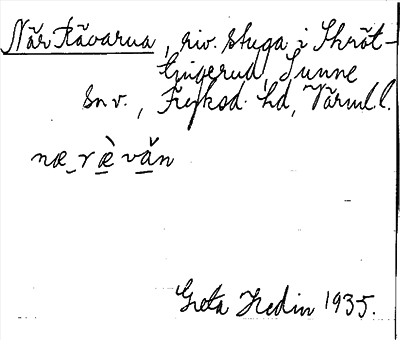 När Rävarna, riv. stuga i Skröt-
tjingerud, Sunne
sn v., Fryksd. hd, Värml. l.
næ̱ r æ̱̀ vă̱n
Greta Hedin 1935.